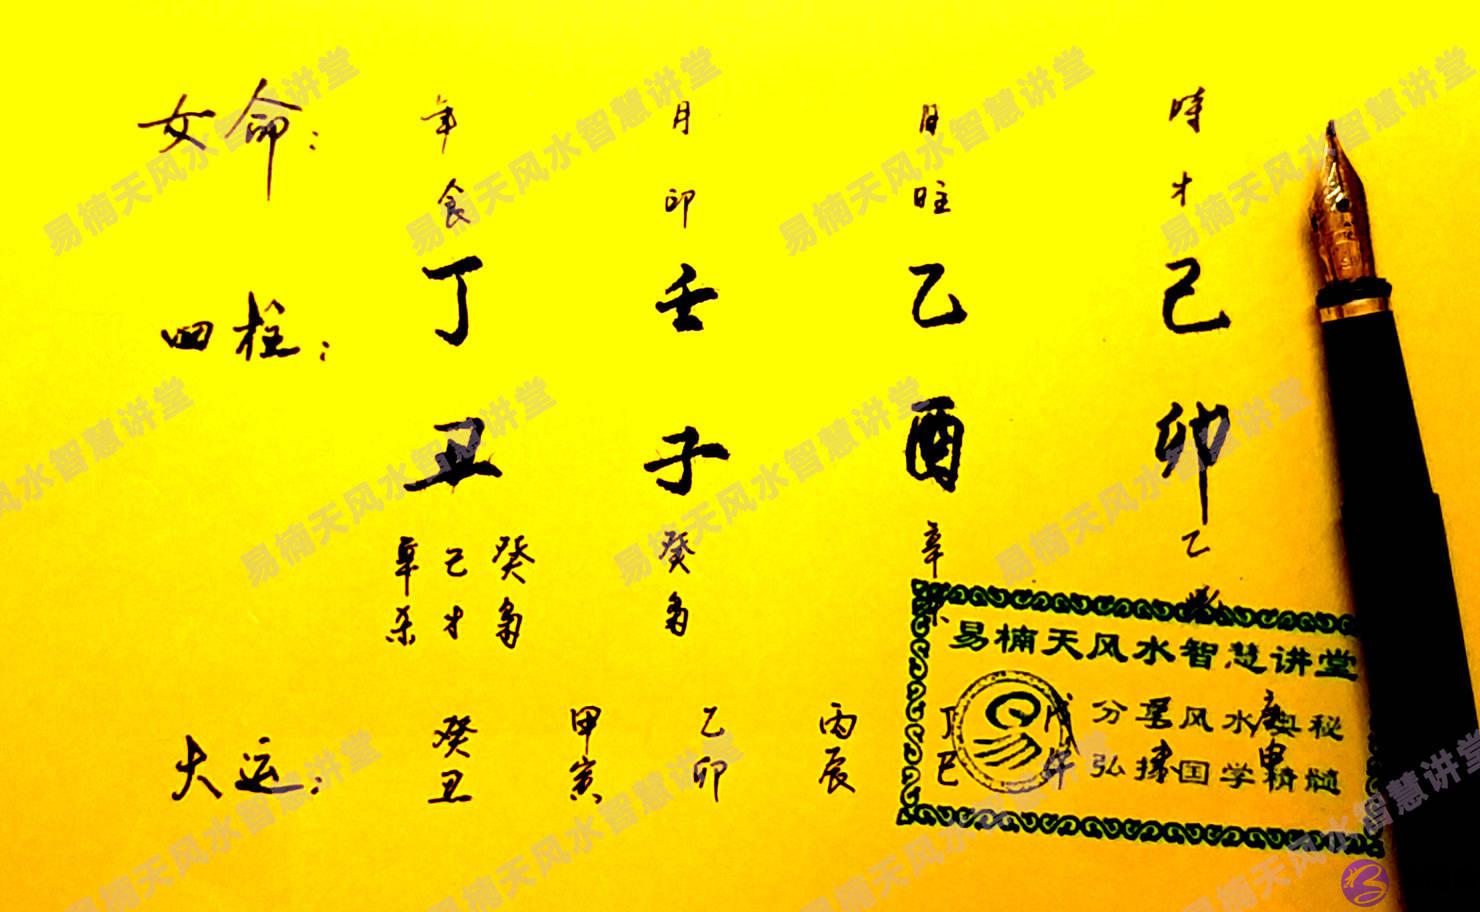 女命： 年 月 日 時
食 印 日主 才
四柱： 丁 壬 乙 己
丑 子 酉 卯
辛 己 癸 癸 辛 乙
杀 才 枭 枭
易楠天风水智慧讲堂
大运： 癸 甲 乙 丙 丁 戊 庚
丑 寅 卯 辰 巳 午 未 申
分享风水奥秘
弘扬国学精髓
易
易楠天风水智慧讲堂